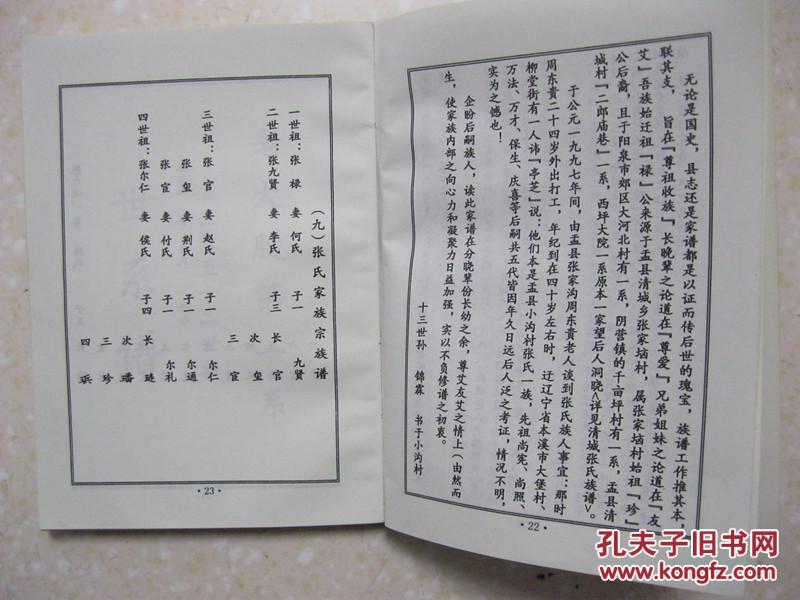 无论是国史，县志还是家谱都是以证而传后世的瑰宝，族谱工作推其本，
联其支，旨在『尊祖收族』，长晚辈之论道在『尊爱』兄弟姐妹之论道在『友
艾』吾族始迁祖『禄』公来源于盂县清城乡张家垴村，属张家垴村始祖『珍』
公后裔，且于阳泉市郊区大河北村有一系，阴营镇的千亩坪村有一系，盂县清
城村『二郎庙巷』一系，西坪大院一系原本一家望后人洞晓<详见清城张氏族谱>。
于公元一九九七年间，由盂县张家沟周东贵老人谈到张氏族人事宜：那时
周东贵二十四岁外出打工，年纪到在四十岁左右时，迁辽宁省本溪市大堡村、
柳堂街有一人讳『亭芝』说：他们本是盂县小沟村张氏一族，先祖尚宪、尚照、
万法、万才、保生、庆喜等后嗣共五代皆因年久日远后人泛之考证，情况不明，
实为之憾也！
企盼后嗣族人，读此家谱在分晓辈份长幼之余，尊艾友艾之情上（由然而
生，使家族内部之向心力和凝聚力日益加强，实以不负修谱之初衷。
十三世孙 锦霖 书于小沟村
·22·
（九）张氏家族宗族谱
一世祖：张禄 妻 何氏 子一 九贤
二世祖：张九贤 妻 李氏 子三 长 官
次 玺
三 宣
三世祖：张官 妻 赵氏 子一 尔仁
张玺 妻 荆氏 子一 尔通
张宣 妻 付氏 子一 尔礼
四世祖：张尔仁 妻 侯氏 子四 长 琏
次 璠
三 珍
四 珷
·23·
孔夫子旧书网
www.kongfz.com